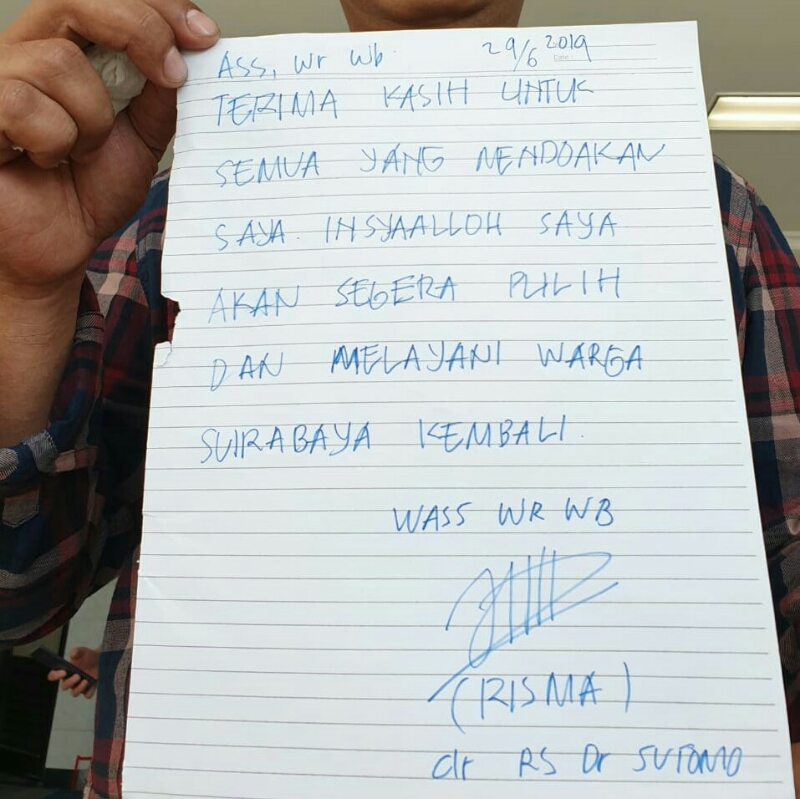 Ass, Wr Wb. 29/6 2019
Date
TERIMA KASIH UNTUK
SEMUA YANG MENDOAKAN
SAYA. INSYAALLOH SAYA
AKAN SEGERA PULIH
DAN MELAYANI WARGA
SURABAYA KEMBALI.
WASS WR WB
(RISMA)
RS Dr SUTOMO